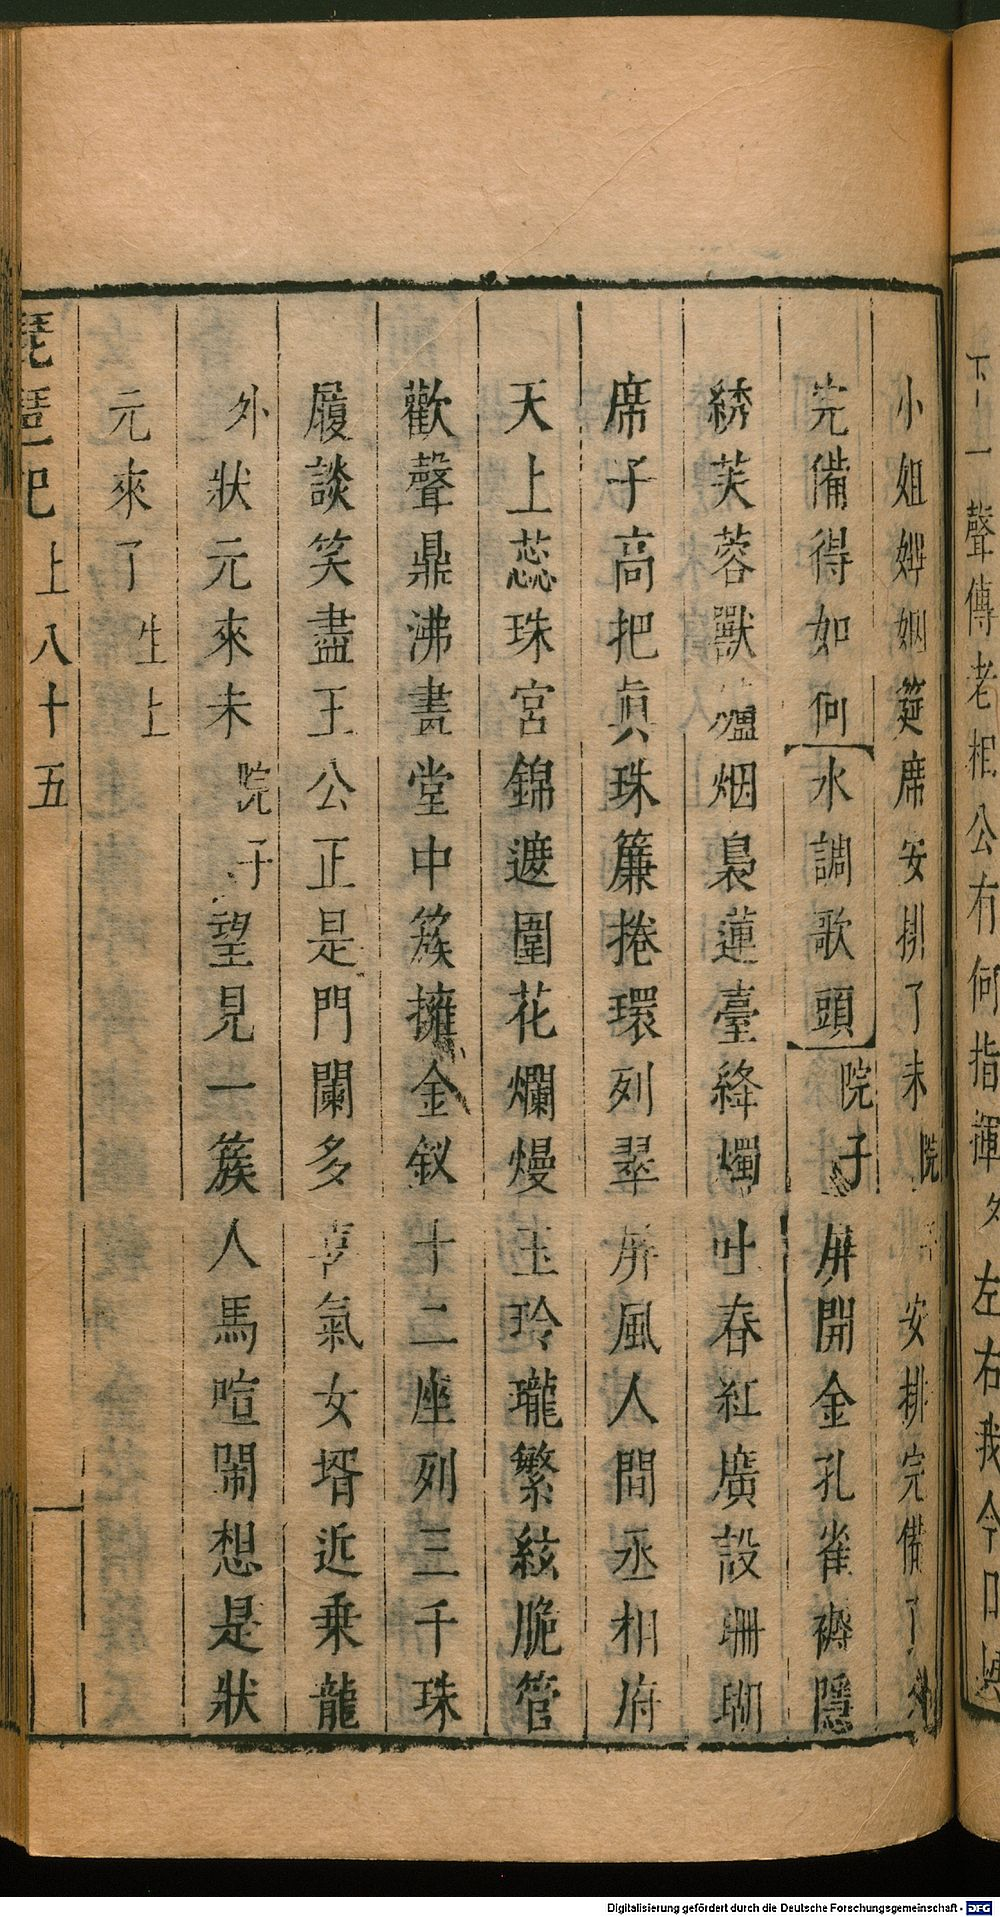 下一聲傳老相公有何指揮外左右我今日與
小姐婢姻筵席安排了未院子安排完備了外
完備得如何【水調歌頭】院子屏開金孔雀褥隱
綉芙蓉獸爐烟裊蓮臺絳燭吐春紅廣設珊瑚
席子高把眞珠簾捲環列翠屏風人間丞相府
天上蕊珠宮錦遮圍花爛熳玉玲瓏繁絃脆管
歡聲鼎沸畫堂中簇擁金釵十二座列三千珠
履談笑盡王公正是門闌多喜氣女壻近乗龍
外狀元來未院子望見一簇人馬喧鬧想是狀
元來了生上
琵琶記上八十五
Digitalisierung gefördert durch die Deutsche Forschungsgemeinschaft - DFG